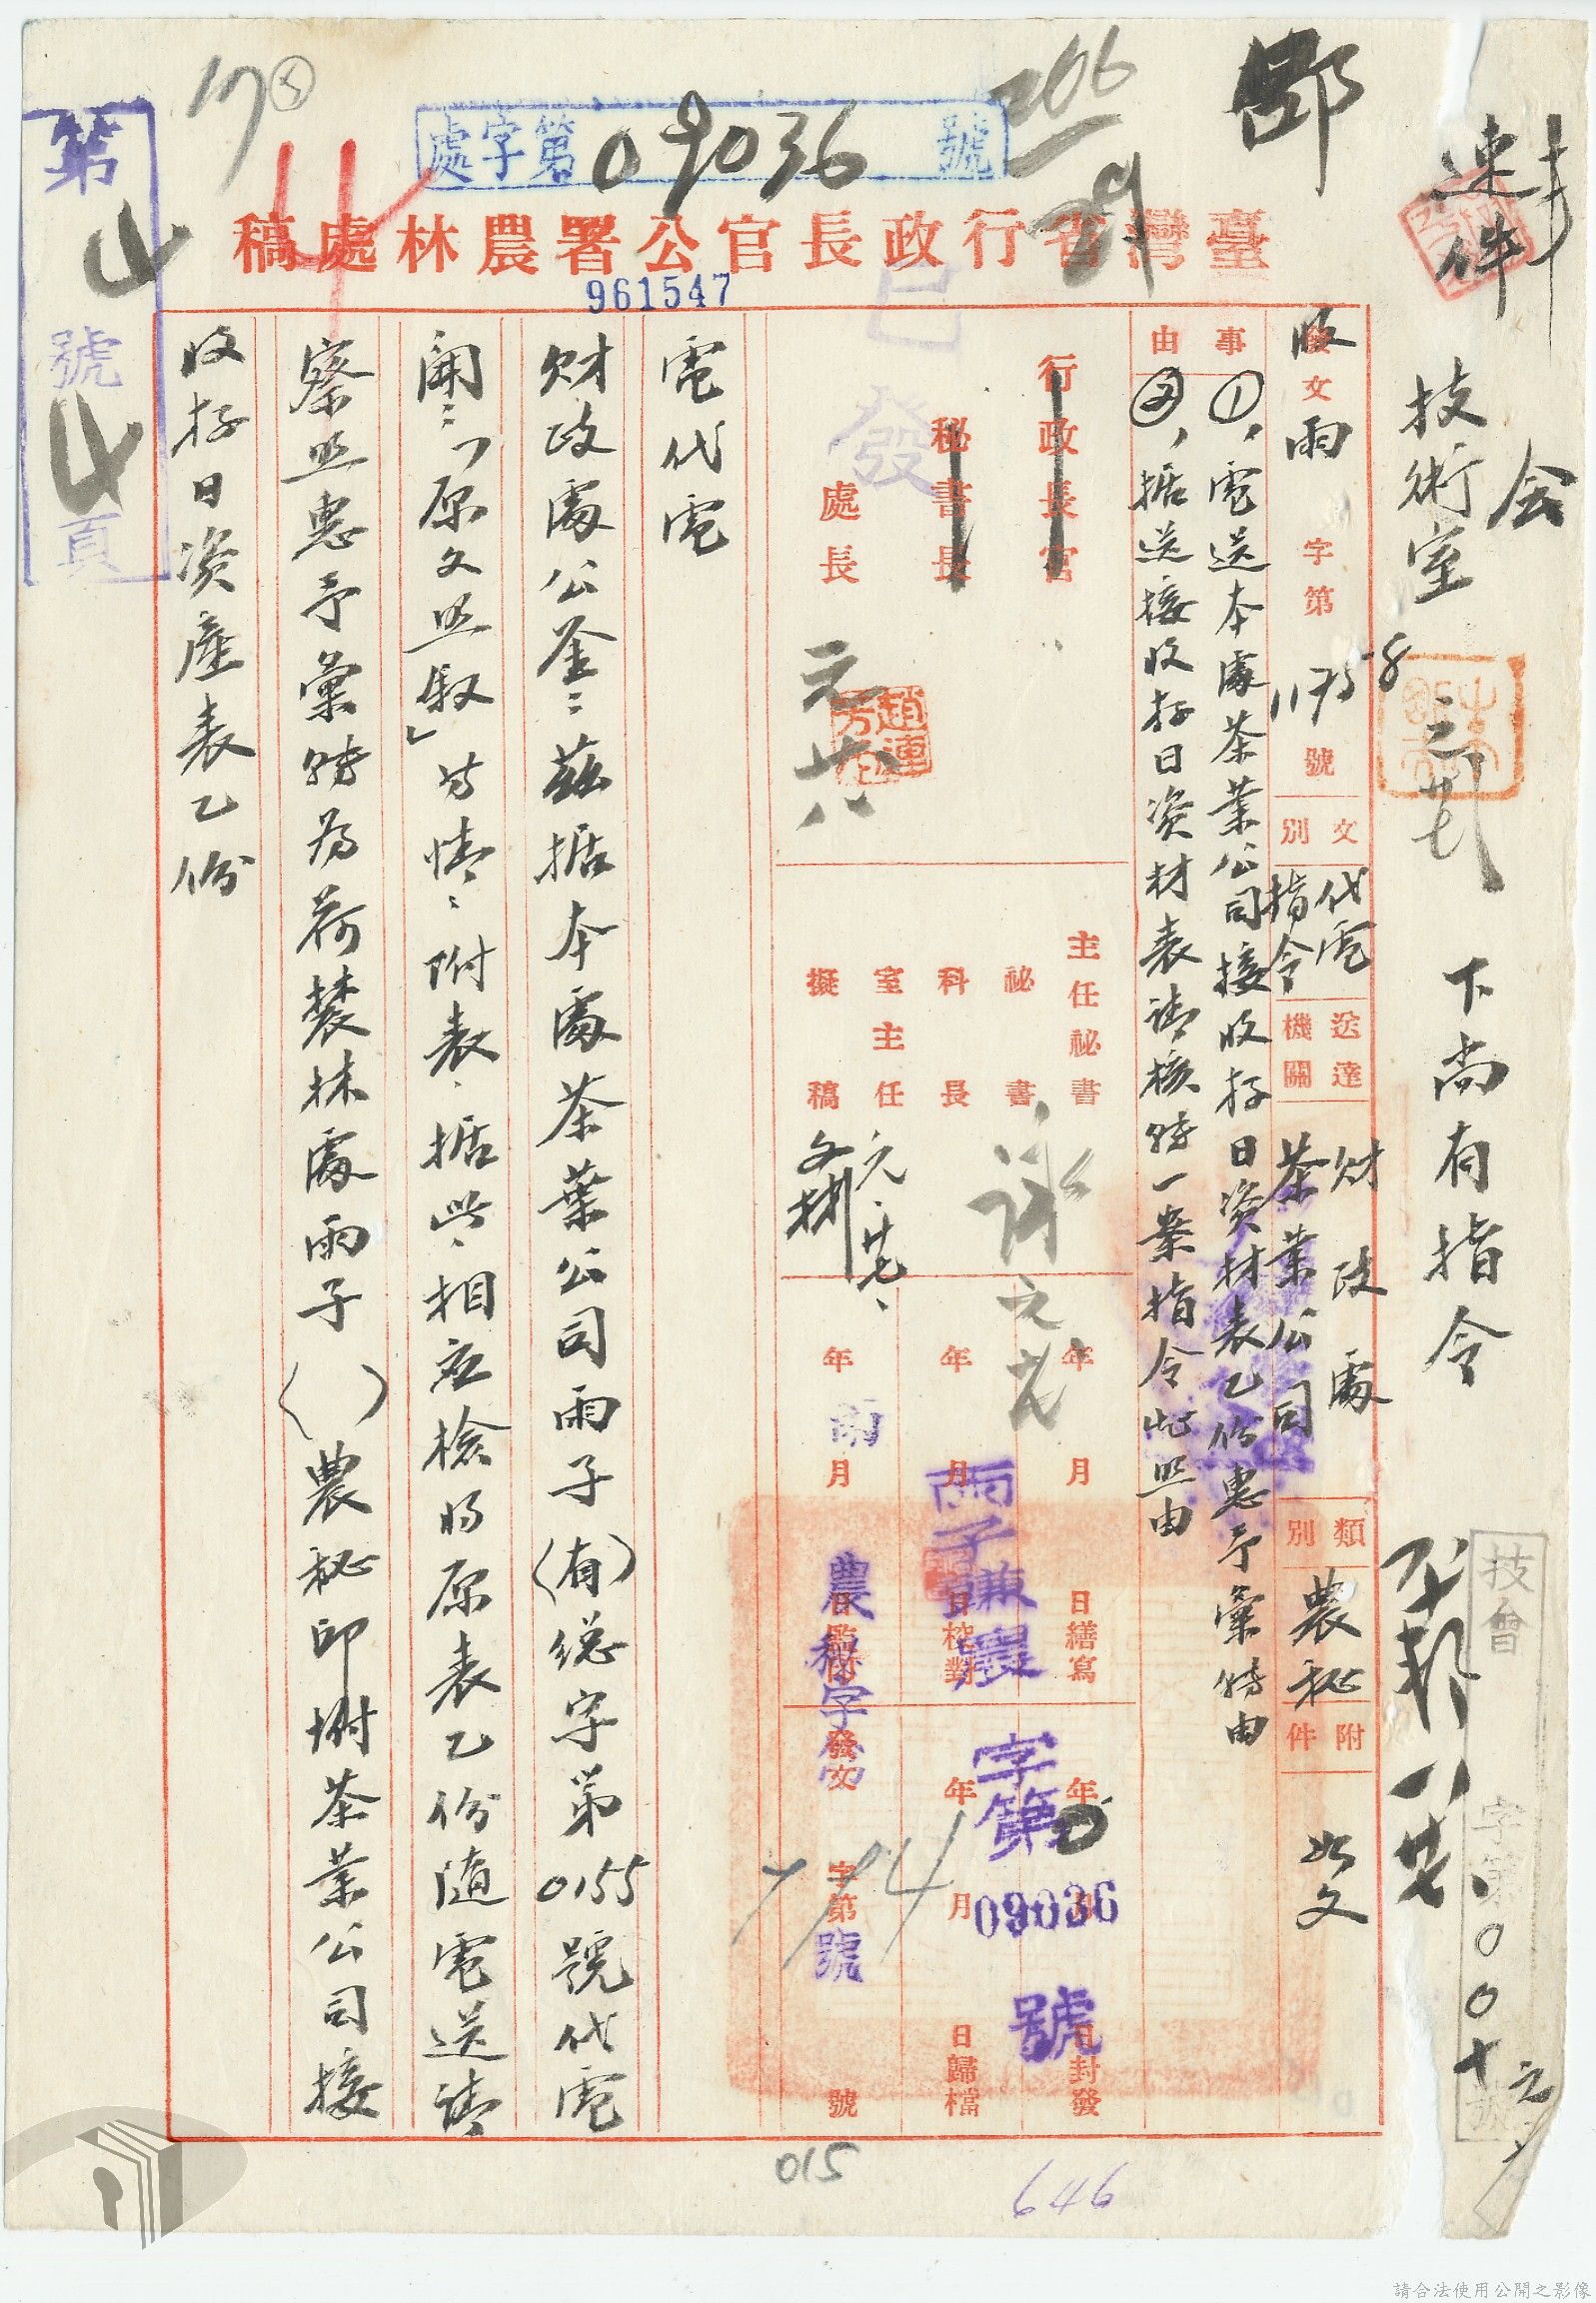 速件
會
技術室
下尚有指令
技會
字第00十號
處字第09036號
臺灣省行政長官公署農林處稿
961547
第 4 號 4 頁
收文雨字第11758號
文別 代電 指令
送達機關 財政處 茶業公司
類別 農秘
附件 如文
事由
①，電送本處茶業公司接收存日資材表乙份惠予彙轉由
②，据送接收存日資材表請核轉一案指令此照由
行政長官
秘書長
處長
已發
趙連芳
主任秘書
秘書
科長
室主任
擬稿
元、廿七、
年 月 日繕寫
年 月 日校對
年 月 日封發
年 月 日歸檔
發文 字第 號
雨子 農
字第09036號
農秘字第 號
電代電
財政處公鉴：茲据本處茶葉公司雨子（有）總字第0155號代電
開：「原文照敘」等情、附表、据此、相应檢同原表乙份随電送請
察照惠予彙轉為荷農林處雨子（ ）農秘印坿茶業公司接
收存日資產表乙份
015
646
請合法使用公開之影像